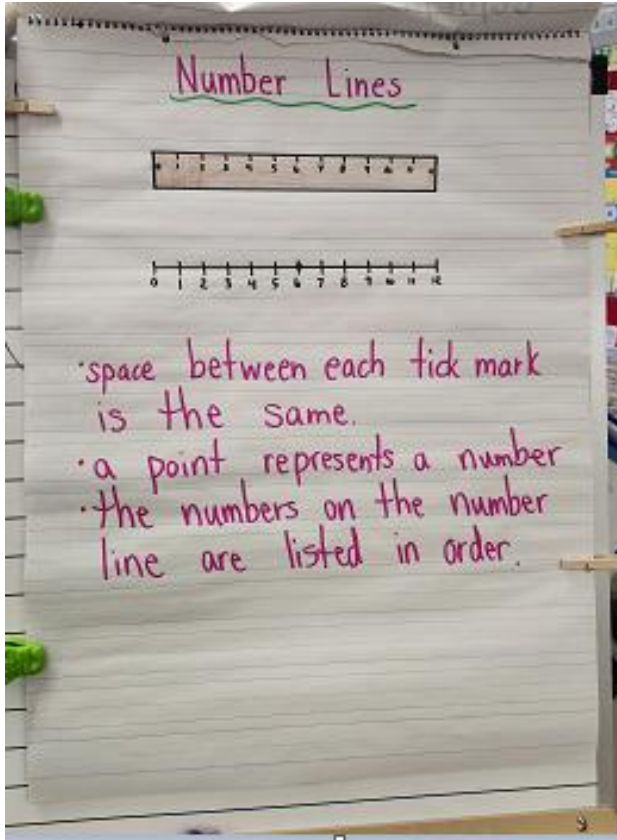 Number Lines
0 1 2 3 4 5 6 7 8 9 10 11 12
0 1 2 3 4 5 6 7 8 9 10 11 12
·space between each tick mark
is the same.
·a point represents a number
·the numbers on the number
line are listed in order.